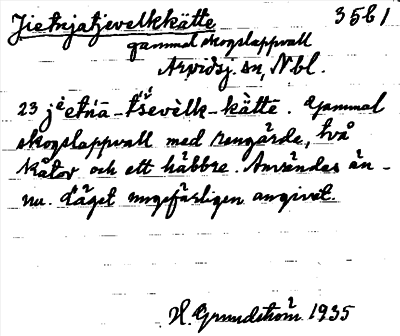 Jietnjatjevelkkätte 3561
gammal skogslappvall
Arvidsj. sn, Nbl.
23 jetńa-tševèlk-kätte. Gammal
skogslappvall med rengärde, två
kåtor och ett häbbre. Användes än-
nu. Läget ungefärligen angivet.
H. Grundström 1935